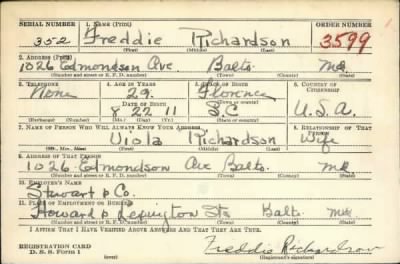 SERIAL NUMBER 1. NAME (Print) ORDER NUMBER
352 Freddie Richardson 3599
(First) (Middle) (Last)
2. ADDRESS (Print)
1026 Edmondson Ave. Balto. Md.
(Number and street or R. F. D. number) (Town) (County) (State)
3. TELEPHONE 4. AGE IN YEARS 5. PLACE OF BIRTH 6. COUNTRY OF CITIZENSHIP
None 29 Florence
DATE OF BIRTH (Town or county)
8 22 11 S.C U.S.A.
(Mo.) (Day) (Yr.) (State or country)
7. NAME OF PERSON WHO WILL ALWAYS KNOW YOUR ADDRESS 8. RELATIONSHIP OF THAT PERSON
Viola Richardson Wife
(Mr., Mrs., Miss) (First) (Middle) (Last)
9. ADDRESS OF THAT PERSON
1026 Edmondson Ave Balto. Md
(Number and street or R. F. D. number) (Town) (County) (State)
10. EMPLOYER'S NAME
Stewart & Co.
11. PLACE OF EMPLOYMENT OR BUSINESS
Howard & Lexington Sts Balto. Md
(Number and street or R. F. D. number) (Town) (County) (State)
I AFFIRM THAT I HAVE VERIFIED ABOVE ANSWERS AND THAT THEY ARE TRUE.
REGISTRATION CARD
D. S. S. Form 1 Freddie Richardson
(Registrant's signature)